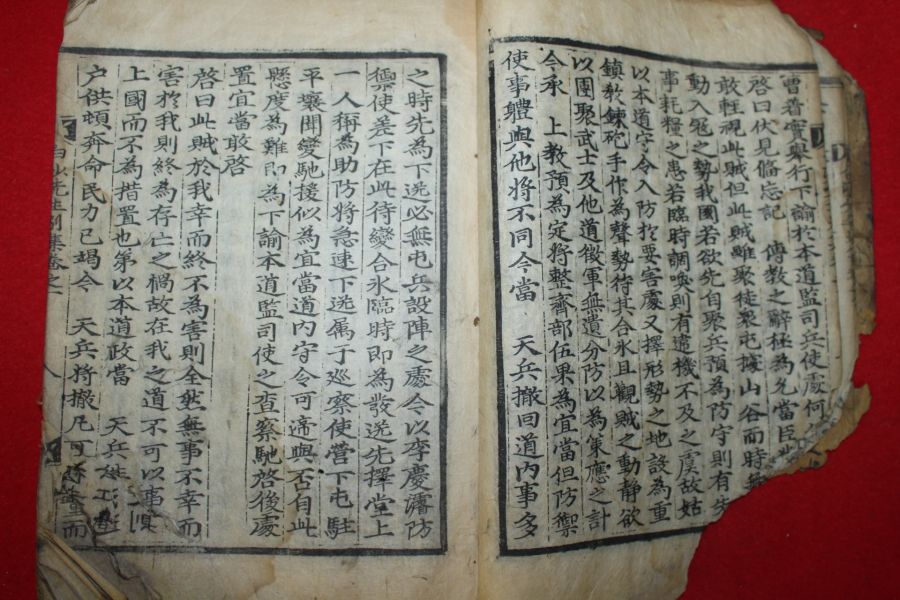 曾着實擧行下諭於本道監司兵使處何
啓曰伏見備忘記 傳敎之辭極爲允當臣
敢輕視此賊但此賊雖聚徒衆屯據山谷而時
動入寇之勢我國若欲先自聚兵預爲防守則有
事耗糧之患若臨時調喚則有遣機不及之虞故姑
以本道守令入防於要害處又擇形勢之地設爲重
鎭敎鍊砲手作爲聲勢待其合氷且觀賊之動靜欲
以團聚武士及他道徵軍無遺分防以爲策應之計
今承 上敎預爲定將整齊部伍果爲宜當但防禦
使事軆與他將不同今當 天兵撤回道內事多
之時先爲下送必無屯兵設陣之處令以李慶濬防
禦使差下在此待變合氷臨時卽爲發送先擇堂上
一人稱爲助防將急速下送屬于巡察使營下屯駐
平壤聞變馳援似爲宜當道內守令可啻與否自此
懸度爲難卽爲下諭本道監司使之査察馳啓後處
置宜當敢啓
啓曰此賊於我幸而終不爲害則全然無事不幸而
害於我則終爲存亡之禍故在我之道不可以事
上國而不爲措置也第以本道政當 天兵
户供頓奔命民力已竭今 天兵將撤凡可 而
先生別集卷之